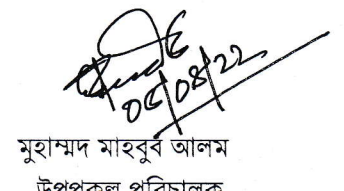 ০৫/০৪/২২
মুহাম্মদ মাহবুব আলম
উপপ্রকল্প পরিচালক